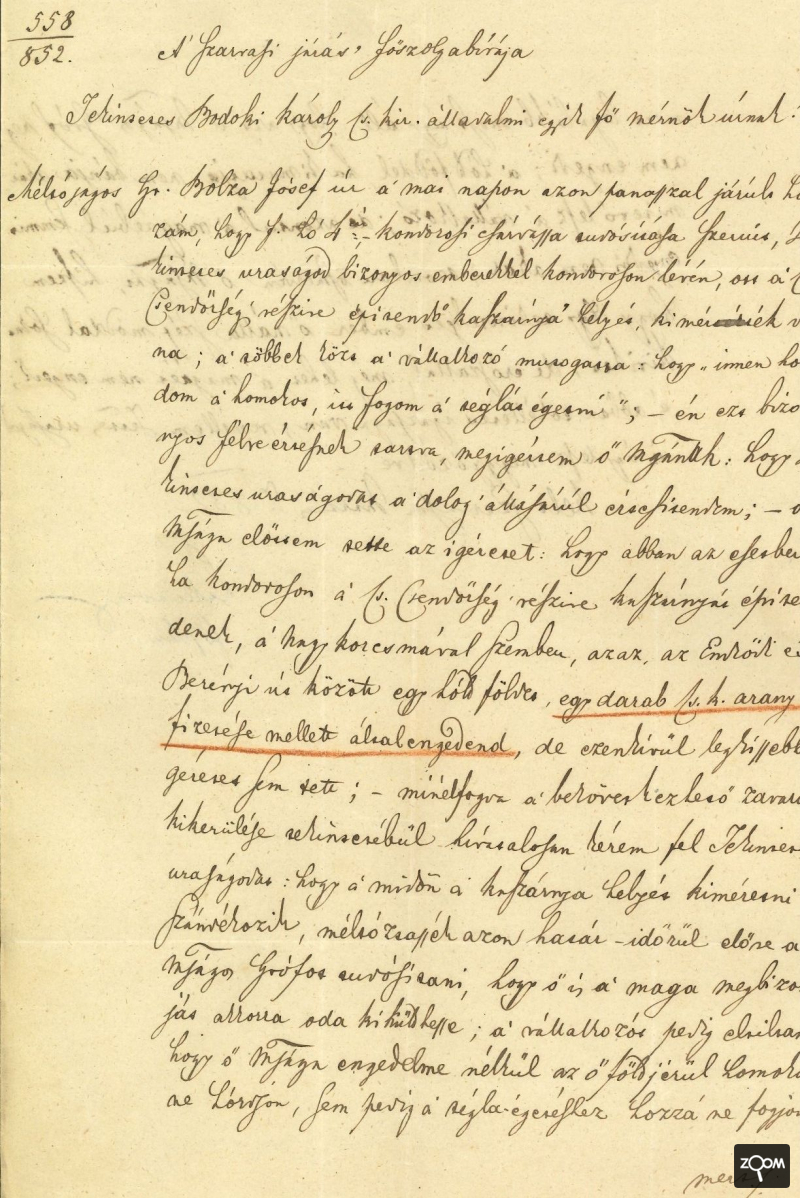 558
852.
A' Szarvasi járás' Főszolgabírája
Tekintetes Bodoki károly Cs. kir. álladalmi egyik fő mérnök úrnak!
Méltóságos Gr. Bolza Jósef úr a' mai napon azon panaszszal járúlt ho
zám, hogy f. hó 4én kondorosi csárdássa tudósítása szerint,
kintetes uraságod bizonyos emberekkel kondoroson lévén, ott a' C
Csendőrség' részire építendő kaszárnya' helyét, kimérték v
na; a' többek közt a' vállalkozó mutogatta: hogy „innen ho
dom a' homokot, itt fogom a' téglát égetni"; – én ezt bizo
nyos félreértésnek tartva, megigértem ő Mgának: hogy
kintetes uraságodat a' dolog' állásárúl értesítendem; –
Mltsága előttem tette az igéretet: hogy abban az esetben
ha kondoroson a' Cs. Csendőrség' részire kaszárnyát építe
denek, a' Nagy korcsmával szemben, azaz, az Endrődi é
Berényi út között egy hóld földet, egy darab Cs. k. arany
fizetése mellett általengedend, de ezenkívül legkissebb
géretet sem tett; – minélfogva a' bekövetkezhető zavaro
kikerülése tekintetébűl hivatalosan kérem fel Tekintet
uraságodat: hogy a' midőn a' kaszárnya helyét kimérетni
szándékozik, méltóztassék azon határ-időrűl előre a
Mltságos Grófot tudósítani, hogy ő is a' maga megbízo
ját akkorra oda kiküldhesse; a' vállalkozót pedig eltiltan
hogy ő Mltsága engedelme nélkül az ő földjérül homoko
ne hordjon, sem pedig a' tégla-égetéshez hozzá ne fogjon
mert
ZOOM